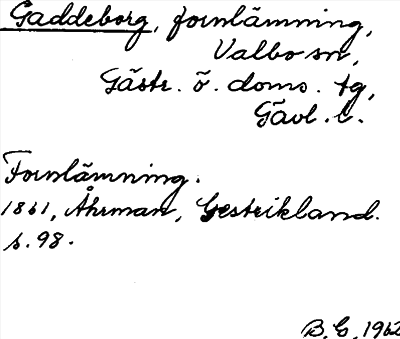 Gaddeborg, fornlämning,
Valbo sn,
Gästr. ö. doms. tg,
Gävl. l.
Fornlämning.
1861, Åhrman, Gestrikland.
s. 98.
B. E. 1962